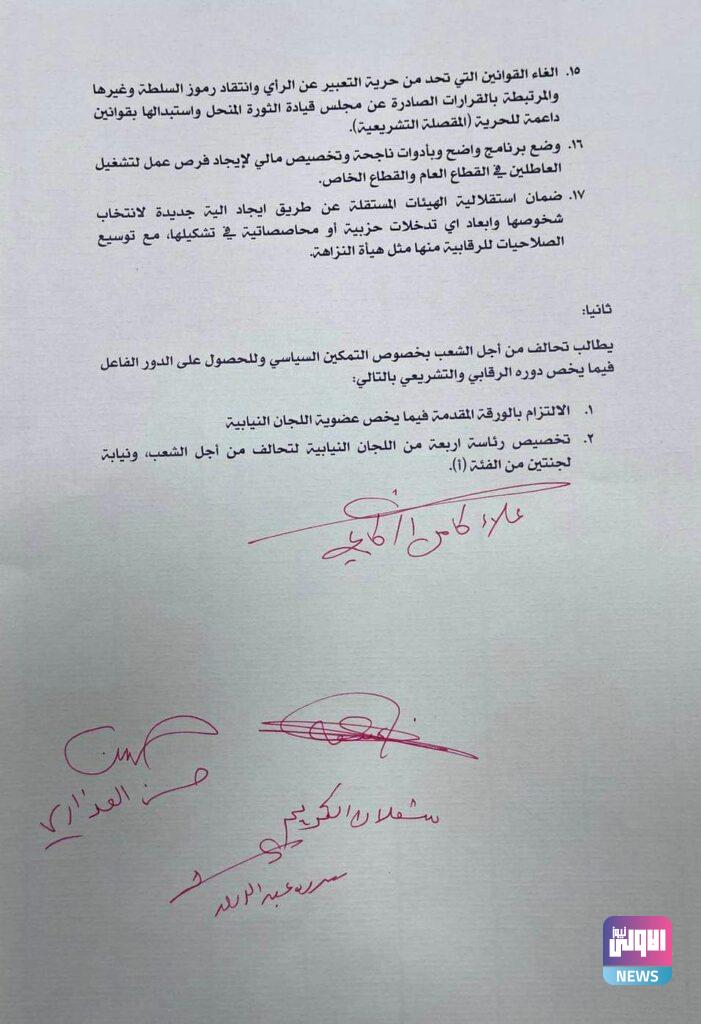 ١٥. الغاء القوانين التي تحد من حرية التعبير عن الرأي وانتقاد رموز السلطة وغيرها
والمرتبطة بالقرارات الصادرة عن مجلس قيادة الثورة المنحل واستبدالها بقوانين
داعمة للحرية (المقصلة التشريعية).
١٦. وضع برنامج واضح وبأدوات ناجحة وتخصيص مالي لإيجاد فرص عمل لتشغيل
العاطلين في القطاع العام والقطاع الخاص.
١٧. ضمان استقلالية الهيئات المستقلة عن طريق ايجاد الية جديدة لانتخاب
شخوصها وابعاد اي تدخلات حزبية أو محاصصاتية في تشكيلها، مع توسيع
الصلاحيات للرقابية منها مثل هيأة النزاهة.
ثانيا:
يطالب تحالف من أجل الشعب بخصوص التمكين السياسي وللحصول على الدور الفاعل
فيما يخص دوره الرقابي والتشريعي بالتالي:
١. الالتزام بالورقة المقدمة فيما يخص عضوية اللجان النيابية
٢. تخصيص رئاسة اربعة من اللجان النيابية لتحالف من أجل الشعب، ونيابة
لجنتين من الفئة (أ).
علاء كامل الركابي
حسن العذاري
شعلان الكريم
عبد
الاولى نيوز
NEWS